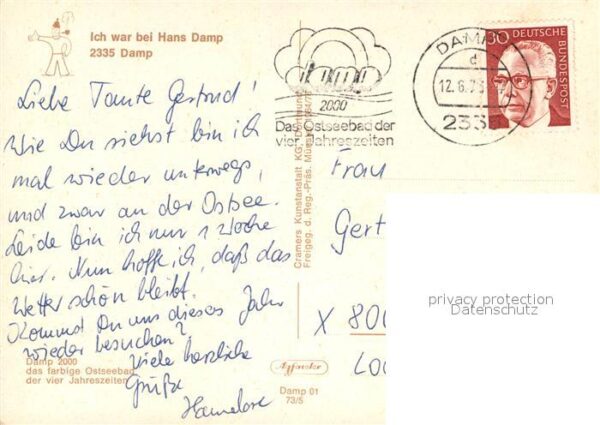 Ich war bei Hans Damp
2335 Damp
Liebe Tante Gertrud!
Wie Du siehst bin ich
mal wieder unterwegs,
und zwar an der Ostsee.
Leide bin ich nur 1 Woche
hier. Nun hoffe ich, daß das
Wetter schön bleibt.
Kommst Du uns dieses Jahr
wieder besuchen?
Viele herzliche
Grüße
Hannelore
Damp 2000
das farbige Ostseebad
der vier Jahreszeiten
Cramers Kunstanstalt KG, Dortmund
Freigeg. d. Reg.-Präs. Münster
2000
Das Ostseebad der
vier Jahreszeiten
DAMP
d
12.6.73
2335
30
DEUTSCHE
BUNDESPOST
Frau
Gert
X 800
privacy protection
Datenschutz
Damp 01
73/5